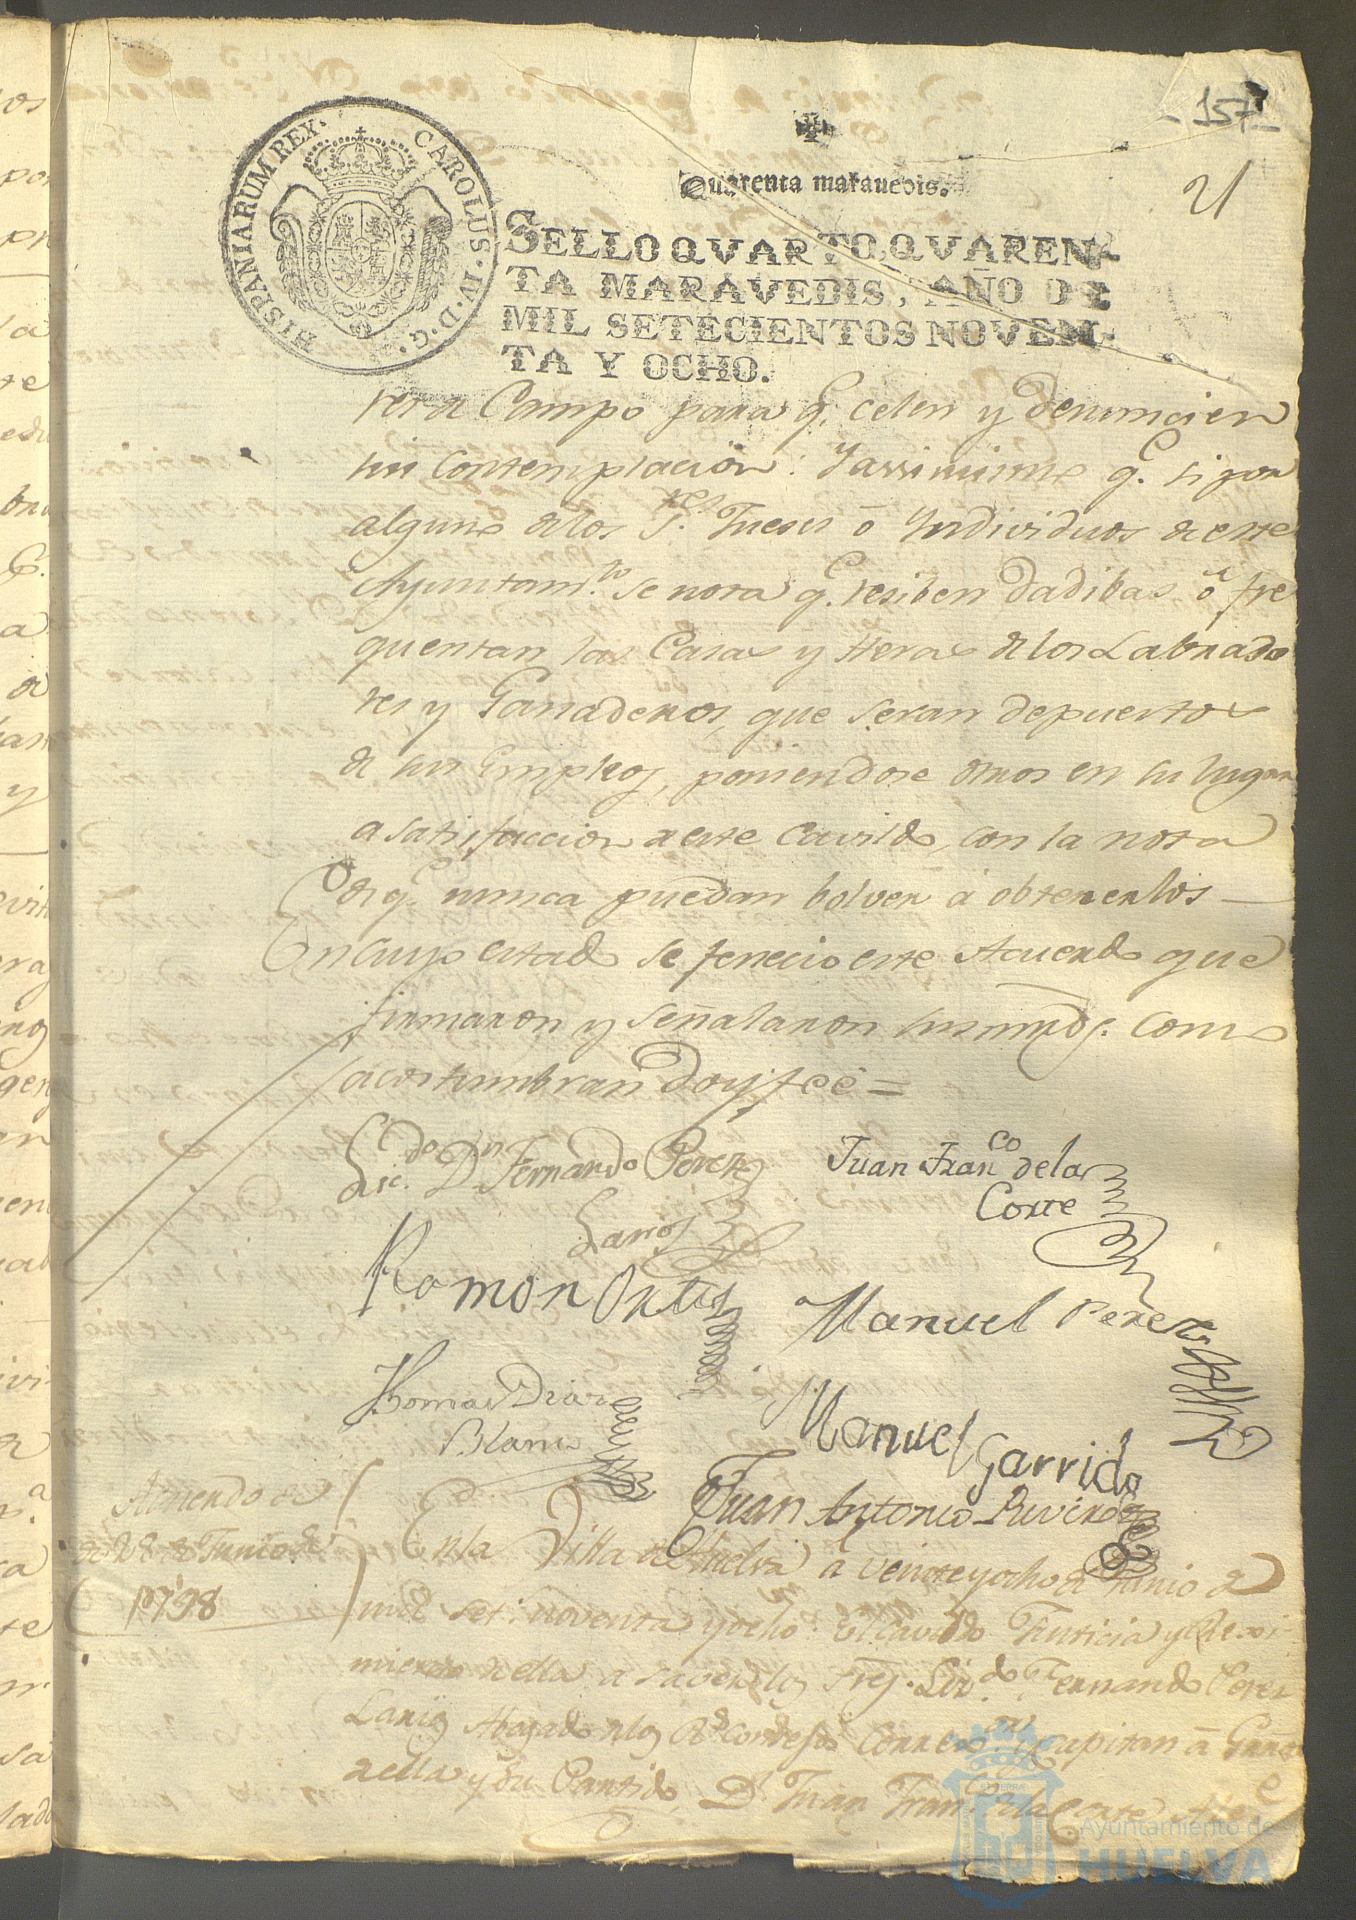 -157-
21
HISPANIARUM REX. CAROLUS. IV. D. G.
Quarenta maravedis.
SELLO QVARTO, QVAREN-
TA MARAVEDIS, AÑO DE
MIL SETECIENTOS NOVEN-
TA Y OCHO.
res de Campo para q.e celen y denuncien
sin contemplacion: Y assimismo q.e si por
alguno de los S.res Jueses ò Yndividuos de este
Ayuntam.to se nota q.e resiben dadibas ò fre
quentan las Casas y Heras de los Labrado
res y Ganaderos, que seran depuestos
de sus Empleos, poniendose otros en su lugar
a satisfaccion de este Cavildo, con la nota
de q.e nunca puedan bolver à obtenerlos
En cuyo estado se fenecio este Acuerdo que
firmaron y señalaron sus mrds. como
acostumbran doy fee =
Lic.do D.n Fernando Perez
Larios
Juan Fran.co de la
Corte
Ramon Ortis
Manuel Perez
Thomas Diaz
Blanco
Manuel Garrido
Juan Antonio Rivera
Acuerdo de
28 de Junio de
1798
En la Villa de Huelva à veinte y ocho de Junio de
mil set.s noventa y ocho: El Cavildo Justicia y Rexi
miento de ella a saver los Sres. Liz.do Fernando Perez
Larios Abogado de los R.s Consejos Correx.or y Capitan à Gra
de ella y su Partido, D.n Juan Fran.co de la Corte
Ayuntamiento de
HUELVA